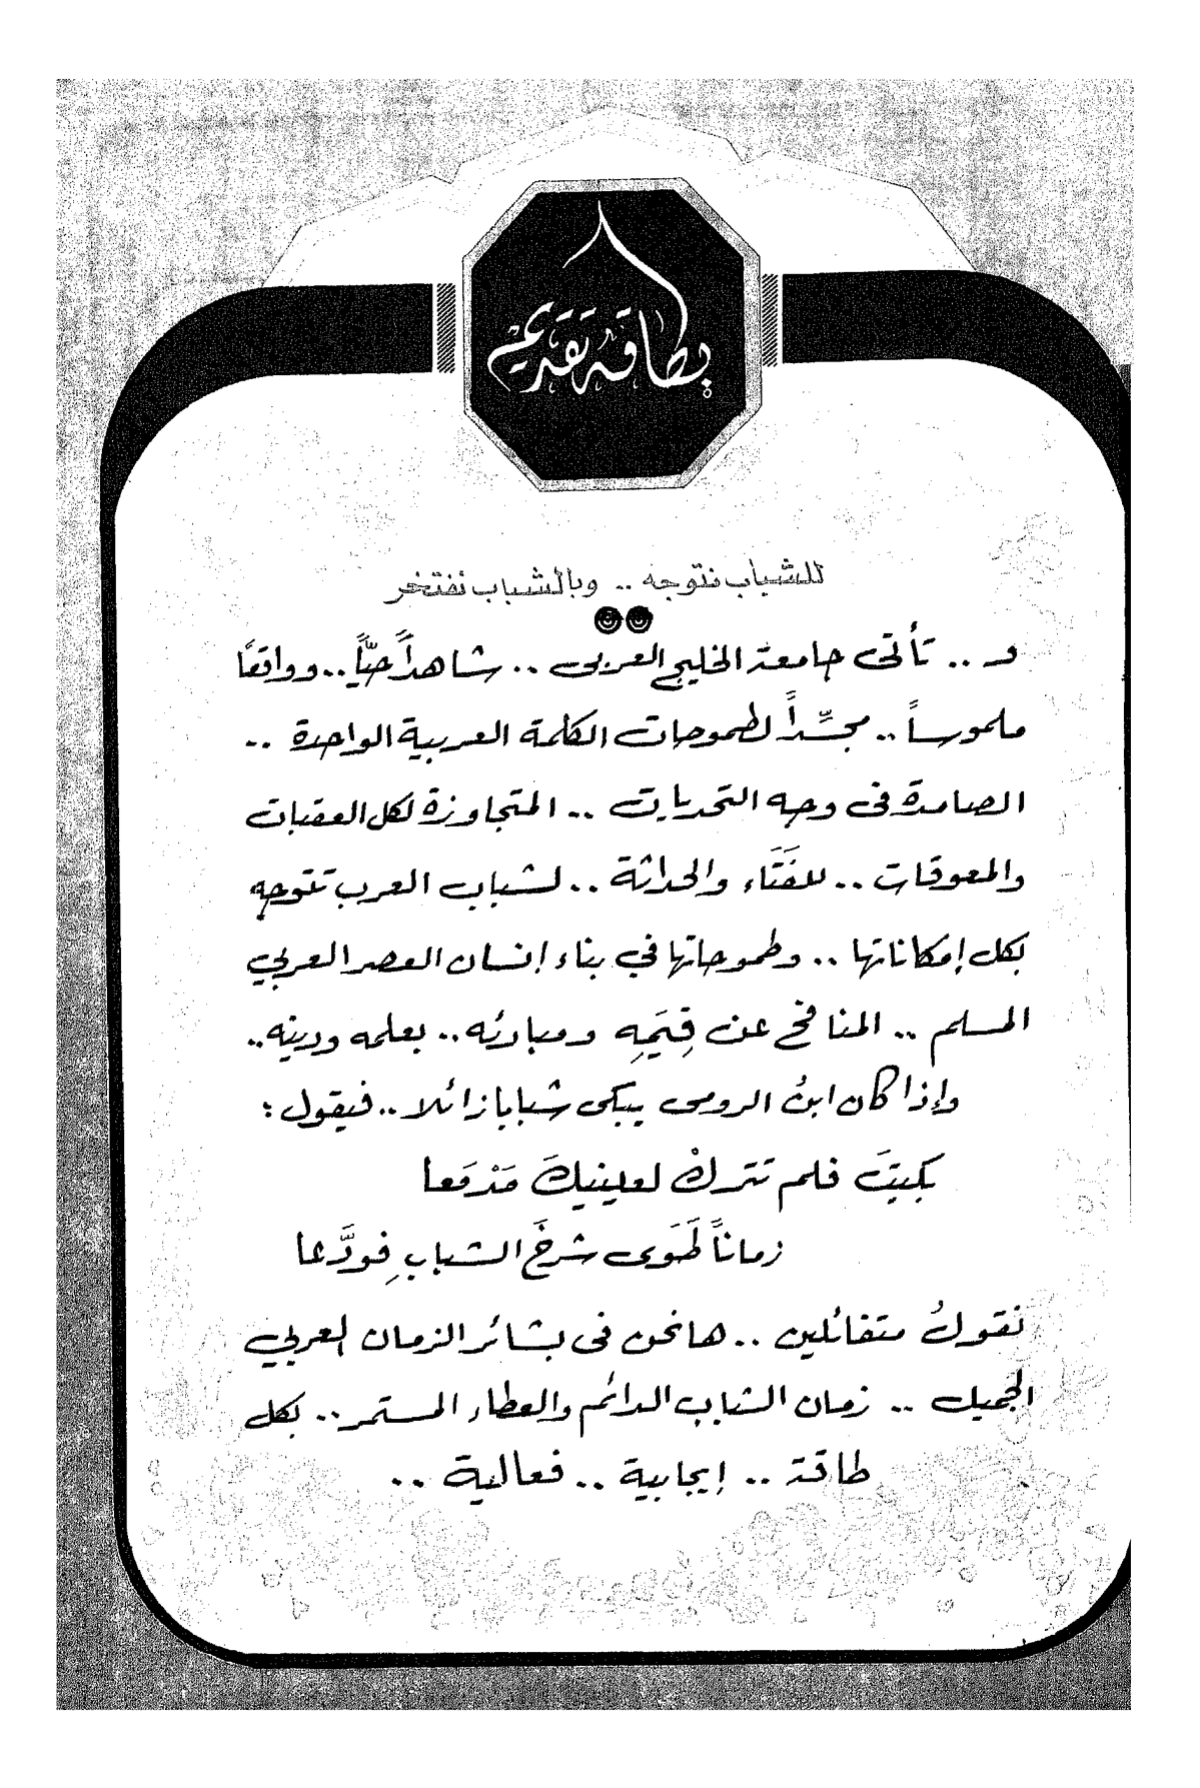 بطاقة تقديم
للشباب نتوجه .. وبالشباب نفتخر
و .. تأتى جامعة الخليج العربى .. شاهداً حيّاً .. وواقعًا
ملموساً .. مجسِّداً لطموحات الكلمة العربية الواحدة ..
الصامدة فى وجه التحديات .. المتجاوزة لكل العقبات
والمعوقات .. للفَتَاء والحداثة .. لشباب العرب تتوجه
بكل إمكاناتها .. وطموحاتها في بناء إنسان العصر العربي
المسلم .. المنافح عن قِيَمِهِ ومبادئه .. بعلمه ودينه ..
وإذا كان ابنُ الرومى يبكى شبابا زائلا .. فيقول :
بكيتَ فلم تتركْ لعينيكَ مَدْمَعا
زماناً طَوَى شرخَ الشبابِ فودَّعا
نقولُ متفائلين .. ها نحن فى بشائر الزمان العربي
الجميل .. زمان الشباب الدائم والعطاء المستمر .. بكل
طاقة .. إيجابية .. فعالية ..